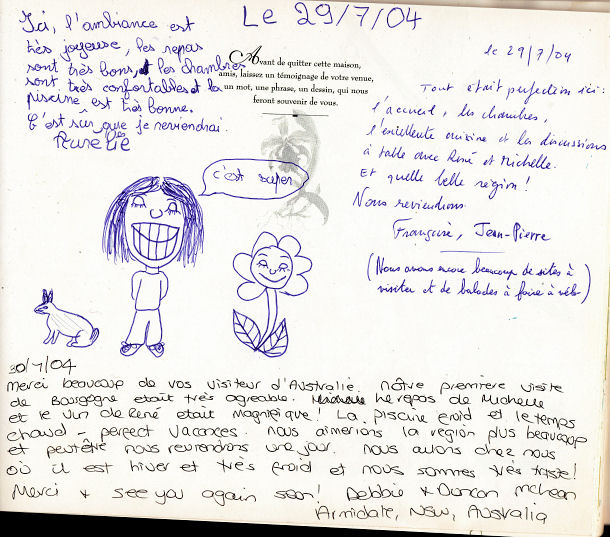 Le 29/7/04
Ici, l'ambiance est
très joyeuse, les repas
sont très bons, et les chambres
sont très confortables et la
piscine est très bonne.
C'est sur que je reviendrai.
Aurelie
Avant de quitter cette maison,
amis, laissez un témoignage de votre venue,
un mot, une phrase, un dessin, qui nous
feront souvenir de vous.
c'est super
le 29/7/04
Tout était perfection ici:
l'accueil, les chambres,
l'excellente cuisine et les discussions
à table avec René et Michelle.
Et quelle belle région!
Nous reviendrons
Françoise, Jean-Pierre
(Nous avons encore beaucoup de sites à
visiter et de balades à faire à vélo)
30/7/04
Merci beaucoup de vos visiteur d'Australie. nôtre première visite
de Bourgogne etait très agreable. Le repas de Michelle
et le vin de René etait magnifique! La piscine froid et le temps
chaud - perfect vacances. nous aimerions la région plus beaucoup
et peutêtre nous reviendrons une jour. nous allons chez nous
où il est hiver et très froid et nous sommes très triste!
Merci & see you again soon! Debbie & Duncan McLean
Armidale, NSW, Australia